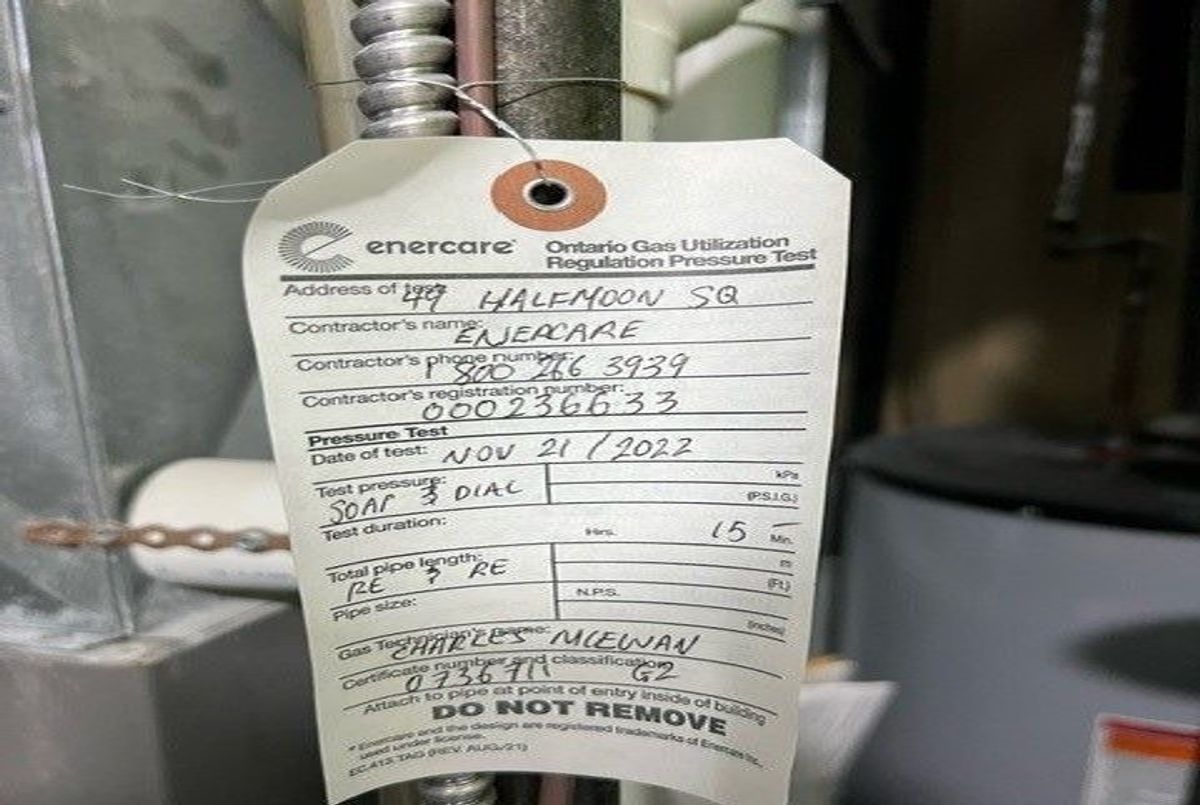 enercare
Ontario Gas Utilization
Regulation Pressure Test
Address of test: 49 HALFMOON SQ
Contractor's name: ENERCARE
Contractor's phone number: 1 800 266 3939
Contractor's registration number: 000236633
Pressure Test
Date of test: NOV 21/2022
Test pressure: kPa
SOAP & DIAL (P.S.I.G.)
Test duration: Hrs. 15 Min.
Total pipe length: m
RE & RE (Ft.)
Pipe size: N.P.S.
(inches)
Gas Technician's name: CHARLES MCEWAN
Certificate number and classification: 0736711 G2
Attach to pipe at point of entry inside of building
DO NOT REMOVE
* Enercare and the design are registered trademarks of Enercare Inc.,
used under license.
EC413 TAG (REV. AUG./21)